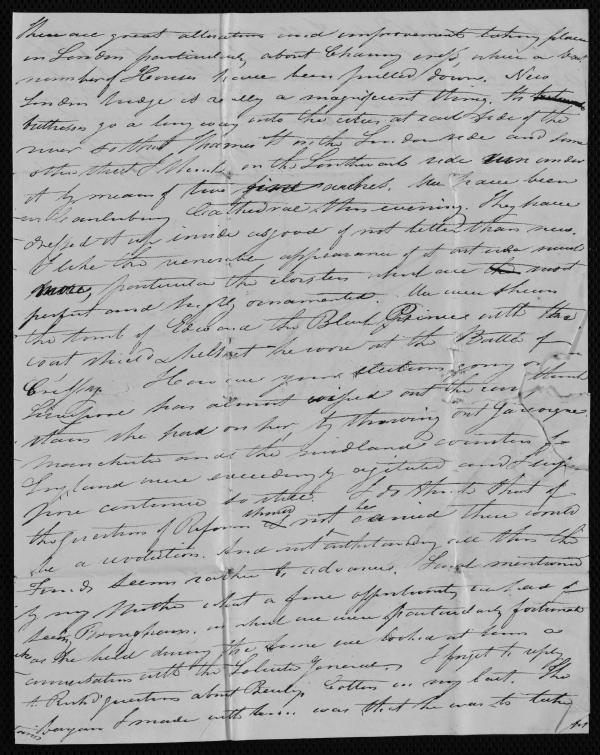 There are great alterations and improvements taking place
in London particularly about Charing cross, where a vast
number of Houses have been pulled down. New
London bridge is really a magnificent thing. Its
buttresses go a long way into the cities at each side of the
river so that Thames St on the London side and some
other street I think on the Southwark side run under
it by means of two arches. We have been
in Canterbury Cathedral this evening. They have
dressed it up inside as good if not better than new.
I like the venerable appearance of it outside much
more, particular the cloisters which are most
perfect and highly ornamented. We were shewn
the tomb of Edward the Black Prince with the
coat shield & helmet he wore at the Battle of
Cressy. How are your elections going on
Liverpool has almost wiped out the
stain she had on her, by throwing out Gascoigne.
Manchester and the midland counties of
England were exceedingly agitated and I sup-
pose continue so still. I do think that if
the question of Reform should not be carried there would
be a revolution. And notwithstanding all this the
Funds seems rather to advance. I had mentioned
to my Mother what a fine opportunity we had of
seeing Brougham in which we were particularly fortunate
as he held during the time we looked at him a
conversation with the Solicitor General. I forgot to reply
to Rich'd question about Cotton in my last. The
bargain I made with him was that he was to take